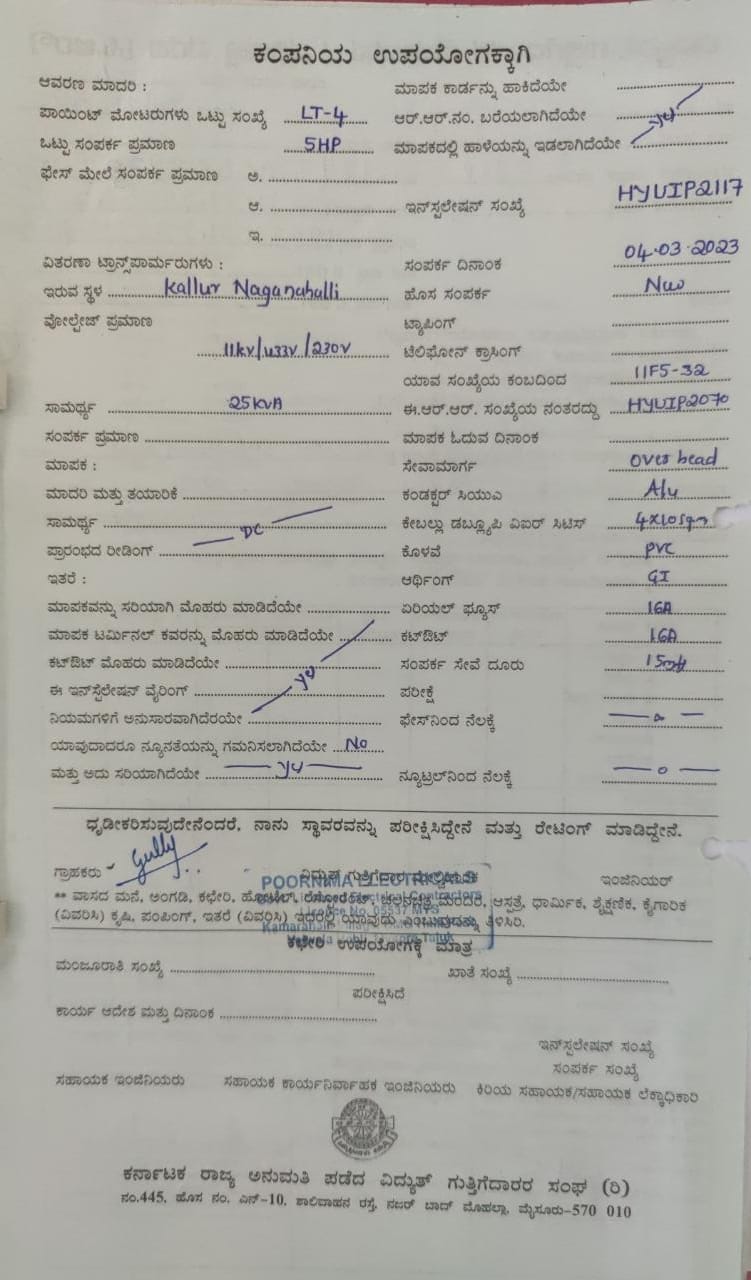 ಕಂಪನಿಯ ಉಪಯೋಗಕ್ಕಾಗಿ
ಆವರಣ ಮಾದರಿ : ಮಾಪಕ ಕಾರ್ಡನ್ನು ಹಾಕಿದೆಯೇ
ಪಾಯಿಂಟ್ ಮೋಟರುಗಳು ಒಟ್ಟು ಸಂಖ್ಯೆ LT-4 ಆರ್.ಆರ್.ನಂ. ಬರೆಯಲಾಗಿದೆಯೇ yes
ಒಟ್ಟು ಸಂಪರ್ಕ ಪ್ರಮಾಣ 5HP ಮಾಪಕದಲ್ಲಿ ಹಾಳೆಯನ್ನು ಇಡಲಾಗಿದೆಯೇ
ಫೇಸ್ ಮೇಲೆ ಸಂಪರ್ಕ ಪ್ರಮಾಣ ಅ.
ಆ. ಇನ್‌ಸ್ಟಲೇಷನ್ ಸಂಖ್ಯೆ HYUIP2117
ಇ.
ವಿತರಣಾ ಟ್ರಾನ್ಸ್‌ಪಾರ್ಮರುಗಳು : ಸಂಪರ್ಕ ದಿನಾಂಕ 04-03-2023
ಇರುವ ಸ್ಥಳ Kallur Naganahalli ಹೊಸ ಸಂಪರ್ಕ New
ವೋಲ್ಟೇಜ್ ಪ್ರಮಾಣ ಟ್ಯಾಪಿಂಗ್
11kv/433v/230v ಟೆಲಿಫೋನ್ ಕ್ರಾಸಿಂಗ್
ಯಾವ ಸಂಖ್ಯೆಯ ಕಂಬದಿಂದ 11F5-32
ಸಾಮರ್ಥ್ಯ 25KVA ಈ.ಆರ್.ಆರ್. ಸಂಖ್ಯೆಯ ನಂತರದ್ದು HYUIP2070
ಸಂಪರ್ಕ ಪ್ರಮಾಣ ಮಾಪಕ ಓದುವ ದಿನಾಂಕ
ಮಾಪಕ : ಸೇವಾಮಾರ್ಗ Over head
ಮಾದರಿ ಮತ್ತು ತಯಾರಿಕೆ ಕಂಡಕ್ಟರ್ ಸಿಯುಎ Alu
ಸಾಮರ್ಥ್ಯ DC ಕೇಬಲ್ಲು ಡಬ್ಲ್ಯೂಪಿ ವಿಐರ್ ಸಿಟಿಸ್ 4x10sqm
ಪ್ರಾರಂಭದ ರೀಡಿಂಗ್ ಕೊಳವೆ PVC
ಇತರೆ : ಆರ್ಥಿಂಗ್ GI
ಮಾಪಕವನ್ನು ಸರಿಯಾಗಿ ಮೊಹರು ಮಾಡಿದೆಯೇ ಏರಿಯಲ್ ಫ್ಯೂಸ್ 16A
ಮಾಪಕ ಟರ್ಮಿನಲ್ ಕವರನ್ನು ಮೊಹರು ಮಾಡಿದೆಯೇ ಕಟ್‌ಔಟ್ 16A
ಕಟ್‌ಔಟ್ ಮೊಹರು ಮಾಡಿದೆಯೇ ಸಂಪರ್ಕ ಸೇವೆ ದೂರು 15mtr
ಈ ಇನ್‌ಸ್ಟೆಲೇಷನ್ ವೈರಿಂಗ್ yes ಪರೀಕ್ಷೆ
ನಿಯಮಗಳಿಗೆ ಅನುಸಾರವಾಗಿದೆರಯೇ ಫೇಸ್‌ನಿಂದ ನೆಲಕ್ಕೆ — o —
ಯಾವುದಾದರೂ ನ್ಯೂನತೆಯನ್ನು ಗಮನಿಸಲಾಗಿದೆಯೇ No
ಮತ್ತು ಅದು ಸರಿಯಾಗಿದೆಯೇ yes ನ್ಯೂಟ್ರಲ್‌ನಿಂದ ನೆಲಕ್ಕೆ — o —
ಧೃಡೀಕರಿಸುವುದೇನೆಂದರೆ, ನಾನು ಸ್ಥಾವರವನ್ನು ಪರೀಕ್ಷಿಸಿದ್ದೇನೆ ಮತ್ತು ರೇಟಿಂಗ್ ಮಾಡಿದ್ದೇನೆ.
ಗ್ರಾಹಕರು ವಿದ್ಯುತ್ ಗುತ್ತಿಗೆದಾರ ಮೇಲ್ವಿಚಾರಕ ಇಂಜಿನಿಯರ್
POORNIMA ELECTRICALS
** ವಾಸದ ಮನೆ, ಅಂಗಡಿ, ಕಛೇರಿ, ಹೋಟೆಲ್, ರೆಸ್ಟೋರೆಂಟ್, ಚಲನಚಿತ್ರ ಮಂದಿರ, ಆಸ್ಪತ್ರೆ, ಧಾರ್ಮಿಕ, ಶೈಕ್ಷಣಿಕ, ಕೈಗಾರಿಕ
(ವಿವರಿಸಿ) ಕೃಷಿ, ಪಂಪಿಂಗ್, ಇತರೆ (ವಿವರಿಸಿ) ಇದರಲ್ಲಿ ಯಾವುದು ಎಂಬುವುದನ್ನು ತಿಳಿಸಿರಿ.
ಕಛೇರಿ ಉಪಯೋಗಕ್ಕೆ ಮಾತ್ರ
ಮಂಜೂರಾತಿ ಸಂಖ್ಯೆ ಖಾತೆ ಸಂಖ್ಯೆ
ಪರೀಕ್ಷಿಸಿದೆ
ಕಾರ್ಯ ಆದೇಶ ಮತ್ತು ದಿನಾಂಕ
ಇನ್‌ಸ್ಟಲೇಷನ್ ಸಂಖ್ಯೆ
ಸಂಪರ್ಕ ಸಂಖ್ಯೆ
ಸಹಾಯಕ ಇಂಜಿನಿಯರು ಸಹಾಯಕ ಕಾರ್ಯನಿರ್ವಾಹಕ ಇಂಜಿನಿಯರು ಕಿರಿಯ ಸಹಾಯಕ/ಸಹಾಯಕ ಲೆಕ್ಕಾಧಿಕಾರಿ
ಕರ್ನಾಟಕ ರಾಜ್ಯ ಅನುಮತಿ ಪಡೆದ ವಿದ್ಯುತ್ ಗುತ್ತಿಗೆದಾರರ ಸಂಘ (ರಿ)
ನಂ.445, ಹೊಸ ನಂ. ಎನ್-10, ಶಾಲಿವಾಹನ ರಸ್ತೆ, ನಜರ್ ಬಾದ್ ಮೊಹಲ್ಲಾ, ಮೈಸೂರು-570 010